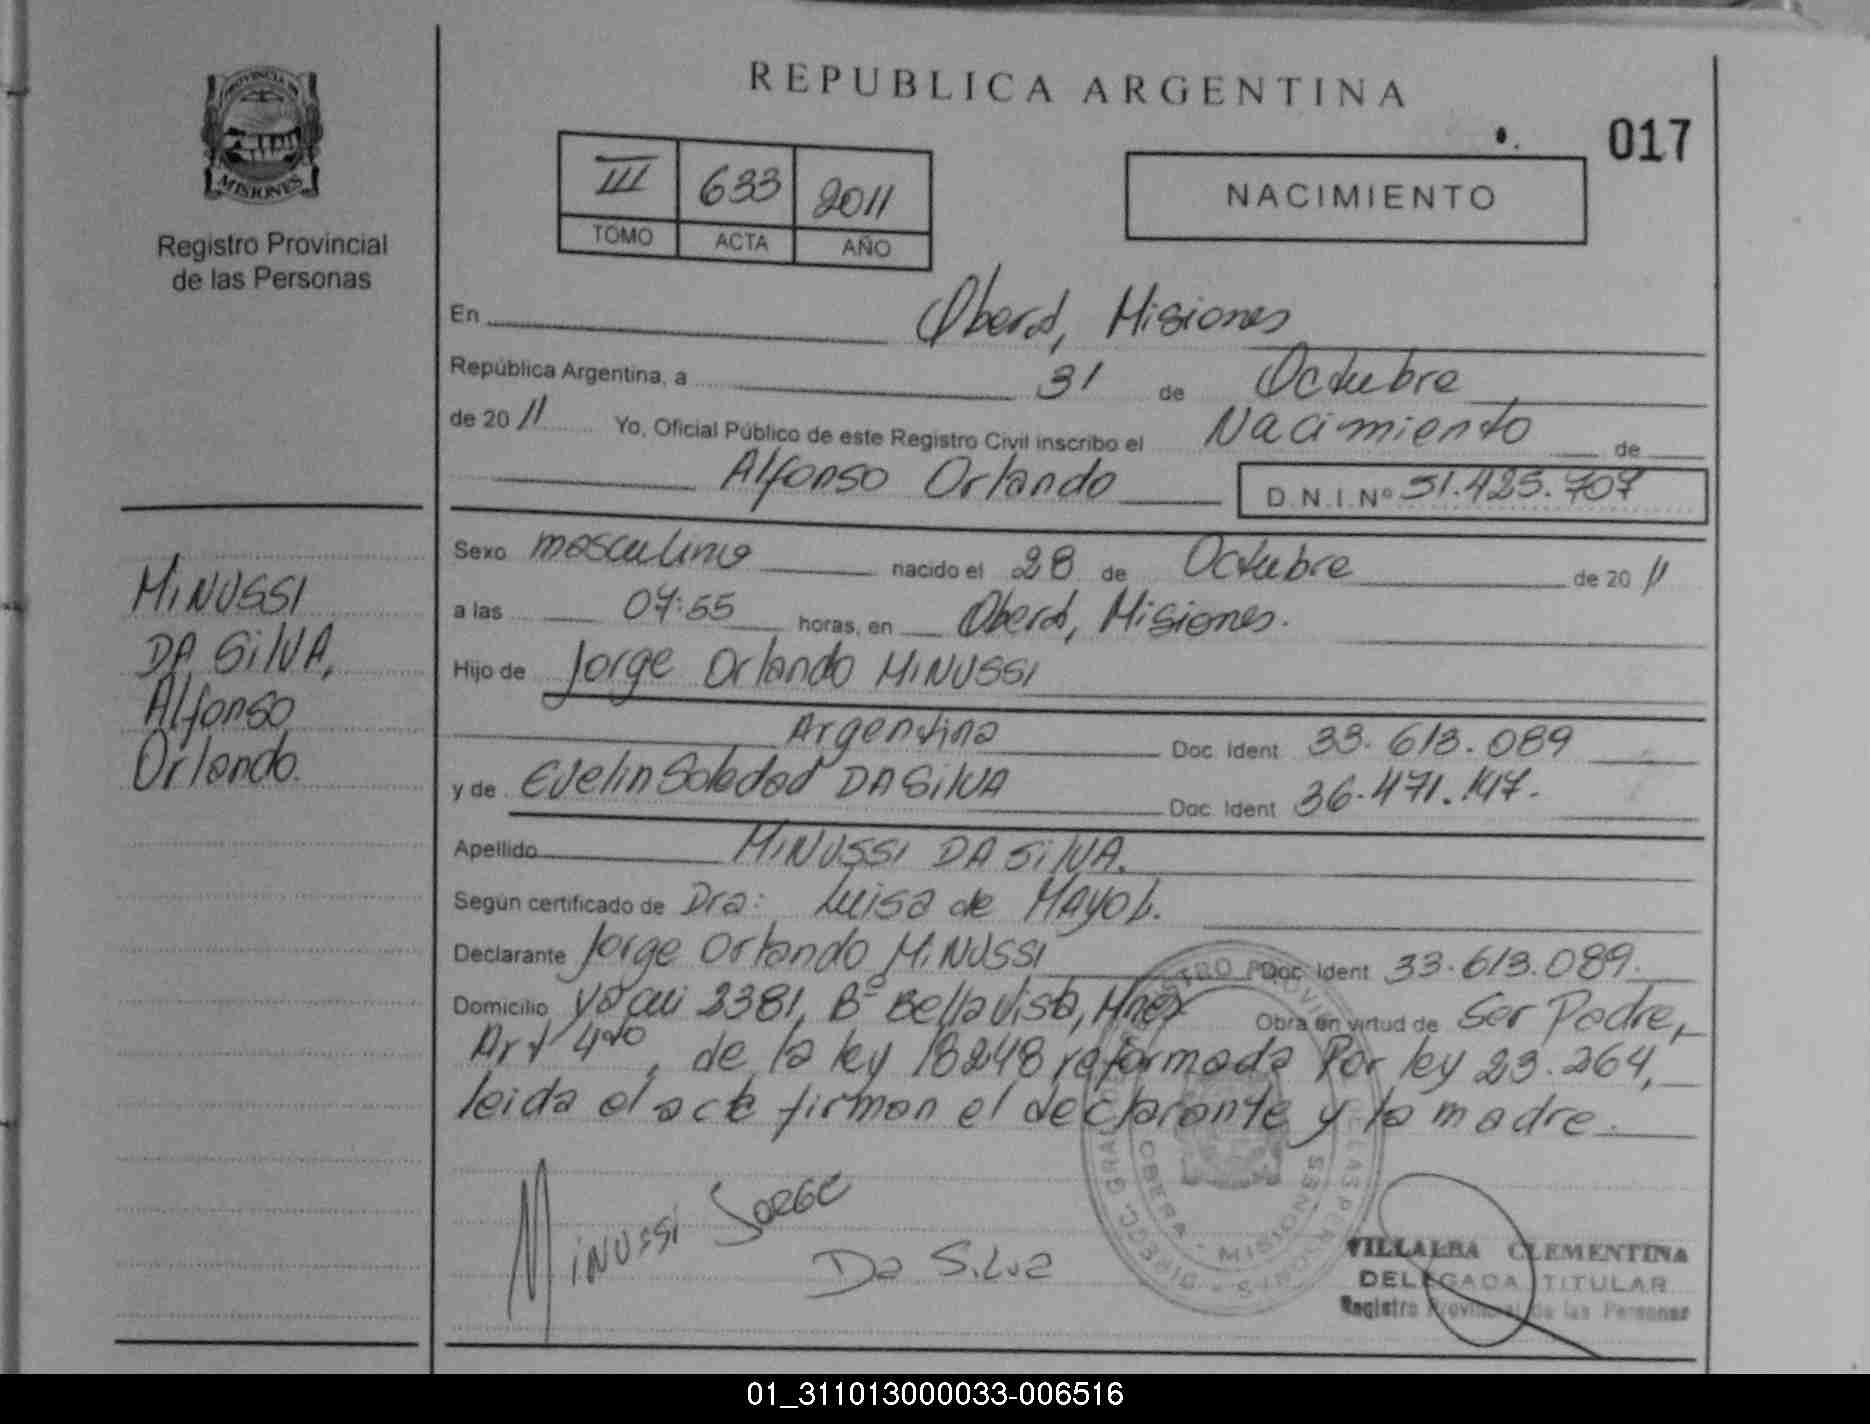 PROVINCIA DE
MISIONES
Registro Provincial
de las Personas
REPUBLICA ARGENTINA
017
III 633 2011
TOMO ACTA AÑO
NACIMIENTO
En Oberá, Misiones
República Argentina, a 31 de Octubre
de 2011 Yo, Oficial Público de este Registro Civil inscribo el Nacimiento de
Alfonso Orlando D.N.I.Nº 51.425.707
Sexo masculino nacido el 28 de Octubre de 2011
a las 07:55 horas, en Oberá, Misiones.
Hijo de Jorge Orlando MiNUSSI
Argentina Doc. Ident 33.613.089
y de Evelin Soledad DA SilVA Doc. Ident 36.471.147.
Apellido MiNUSSI DA SilVA.
Según certificado de Dra: Luisa de Mayol.
Declarante Jorge Orlando MiNUSSI Doc. Ident 33.613.089.
Domicilio 2381, Bº Bella Vista, Obra en virtud de Ser Padre,
Art 4to, de la ley 18248 reformada Por ley 23.264,
leida el acta firman el declarante y la madre.
MiNUSSI
DA SilVA,
Alfonso
Orlando.
MiNUSSi JORGE
Da Silva
REGISTRO PROVINCIAL DE LAS PERSONAS
OBERA - MISIONES
VILLALBA CLEMENTINA
DELEGADA TITULAR
Registro Provincial de las Personas
01_311013000033-006516